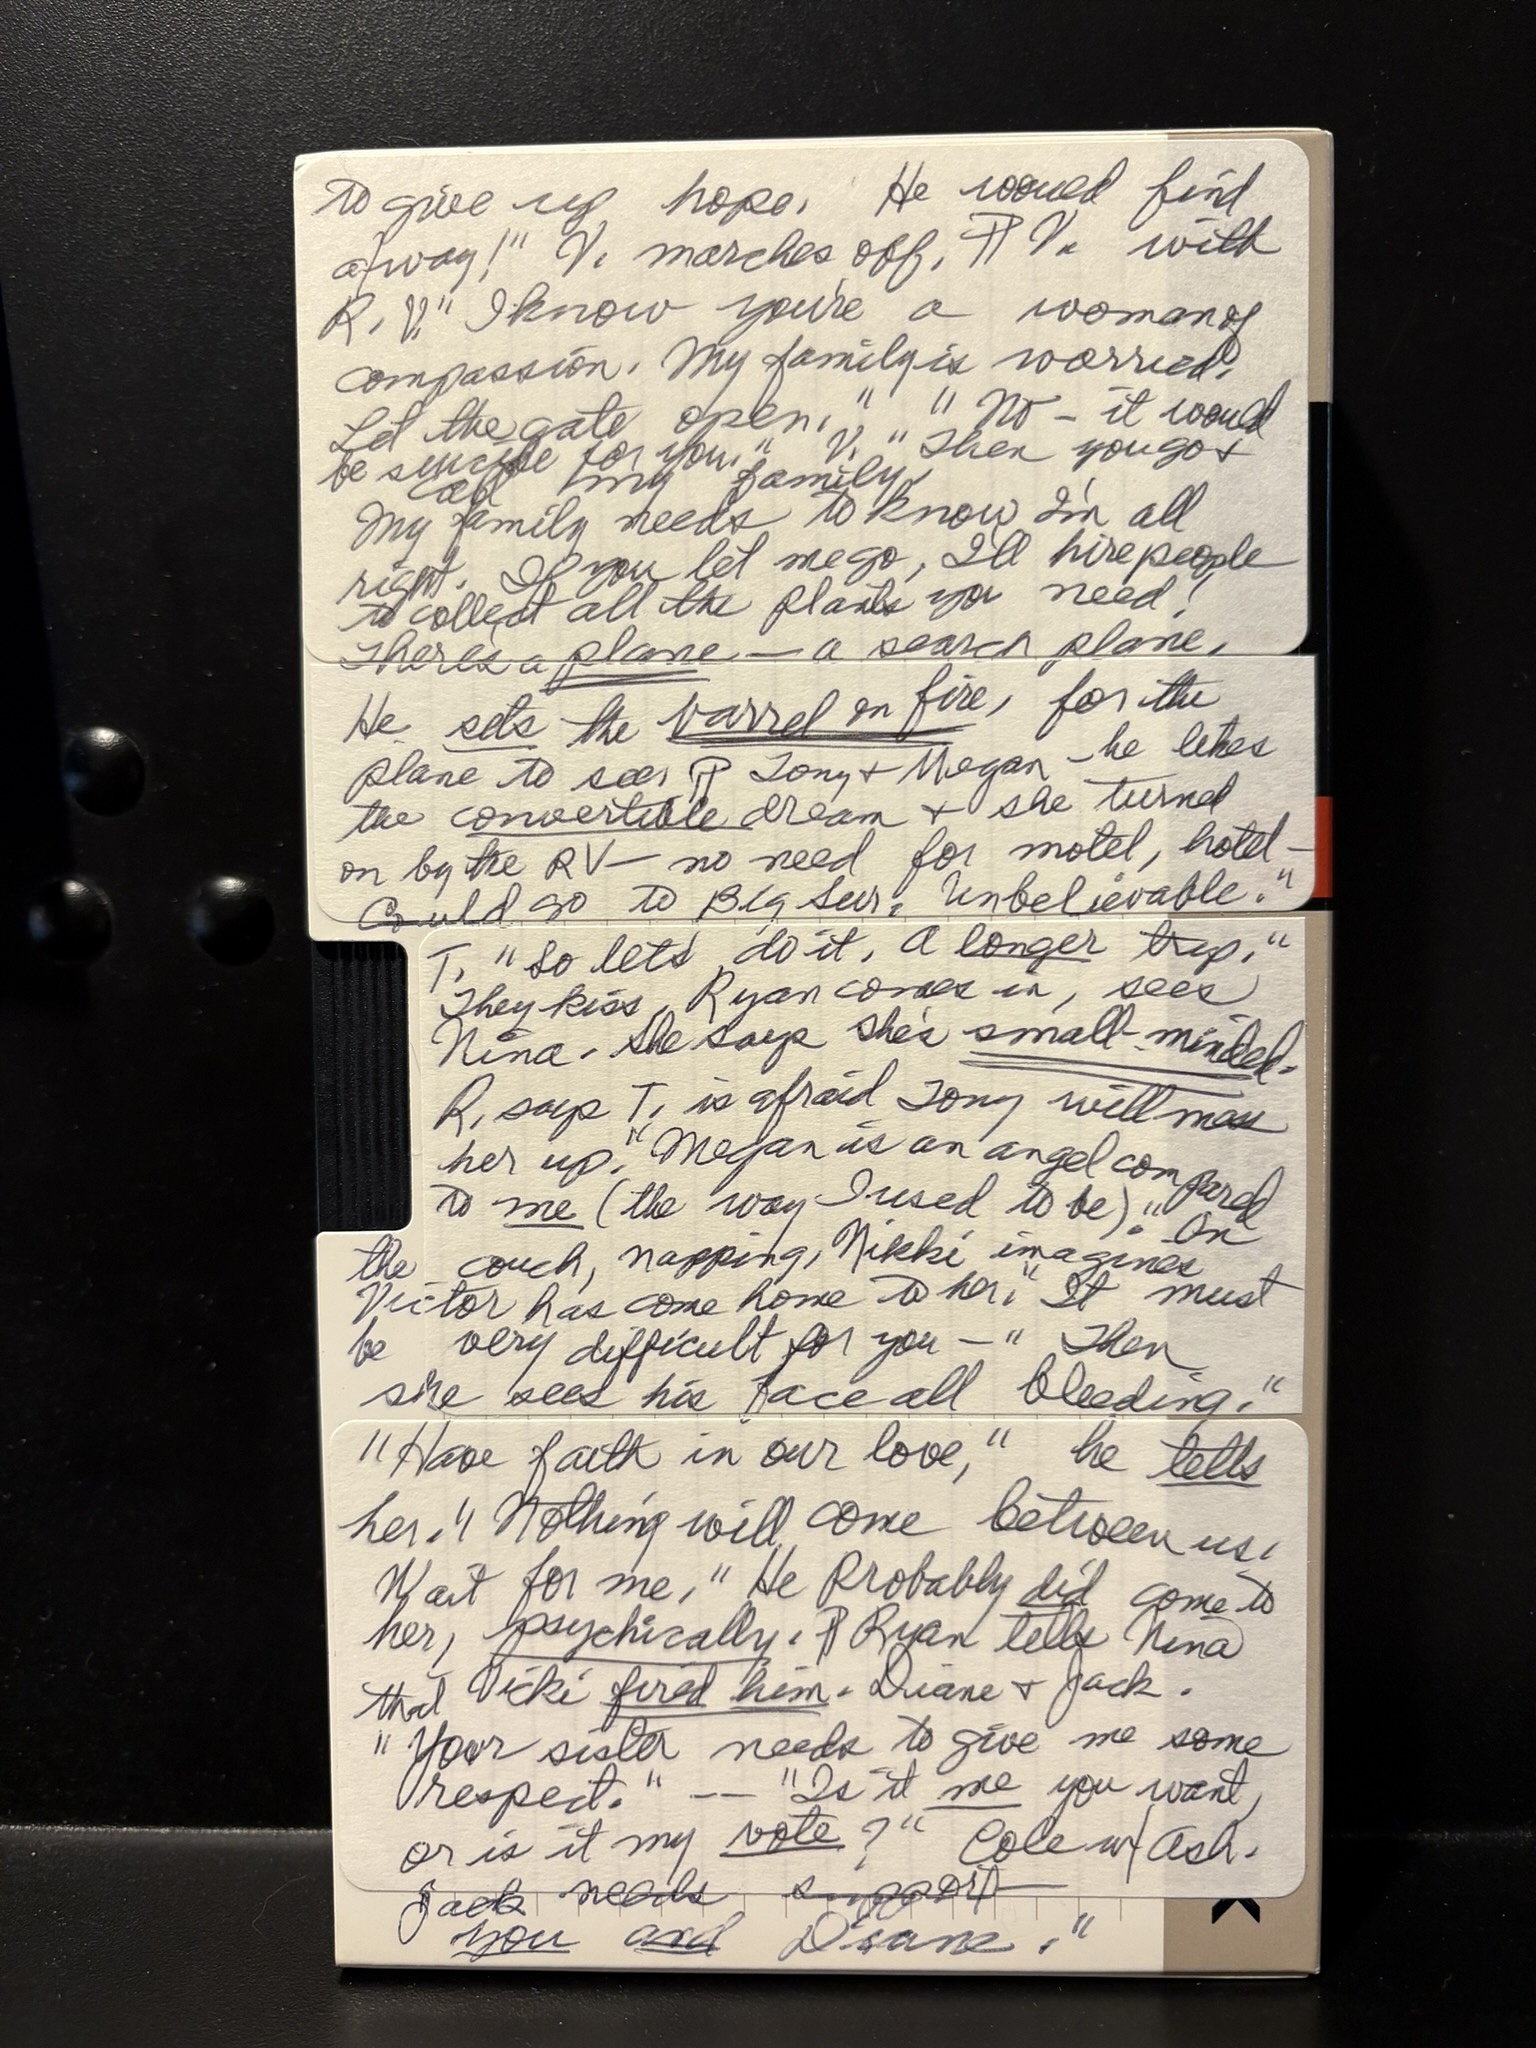 to give up hope. He would find
a way!" V. marches off. ¶ V. with
R. V. "I know you're a woman of
compassion. My family is worried.
Let the gate open." "No – it would
be suicide for you." V. "Then you go +
call my family.
My family needs to know I'm all
right. If you let me go, I'll hire people
to collect all the plants you need!
There's a plane — a search plane.
He sets the barrel on fire, for the
plane to see. ¶ Tony + Megan – he likes
the convertible dream + she turned
on by the RV — no need for motel, hotel –
Could go to Big Sur. "Unbelievable."
T. "So let's do it. A longer trip."
They kiss. Ryan comes in, sees
Nina. She says she's small-minded.
R. says T. is afraid Tony will mess
her up. "Megan is an angel compared
to me (the way I used to be)." On
the couch, napping, Nikki imagines
Victor has come home to her. "It must
be very difficult for you —" Then
she sees his face all bleeding."
"Have faith in our love," he tells
her. "Nothing will come between us.
Wait for me." He probably did come to
her, psychically. ¶ Ryan tells Nina
that Vicki fired him. Diane + Jack.
"Your sister needs to give me some
respect." –– "Is it me you want,
or is it my vote?" Cole w/ Ash.
Jack needs support —
you and Diane."